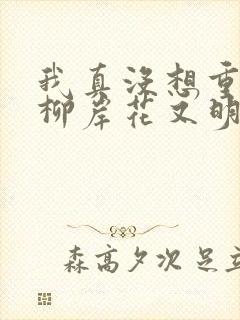 我真没想重
柳岸花又明
森高夕次 足立